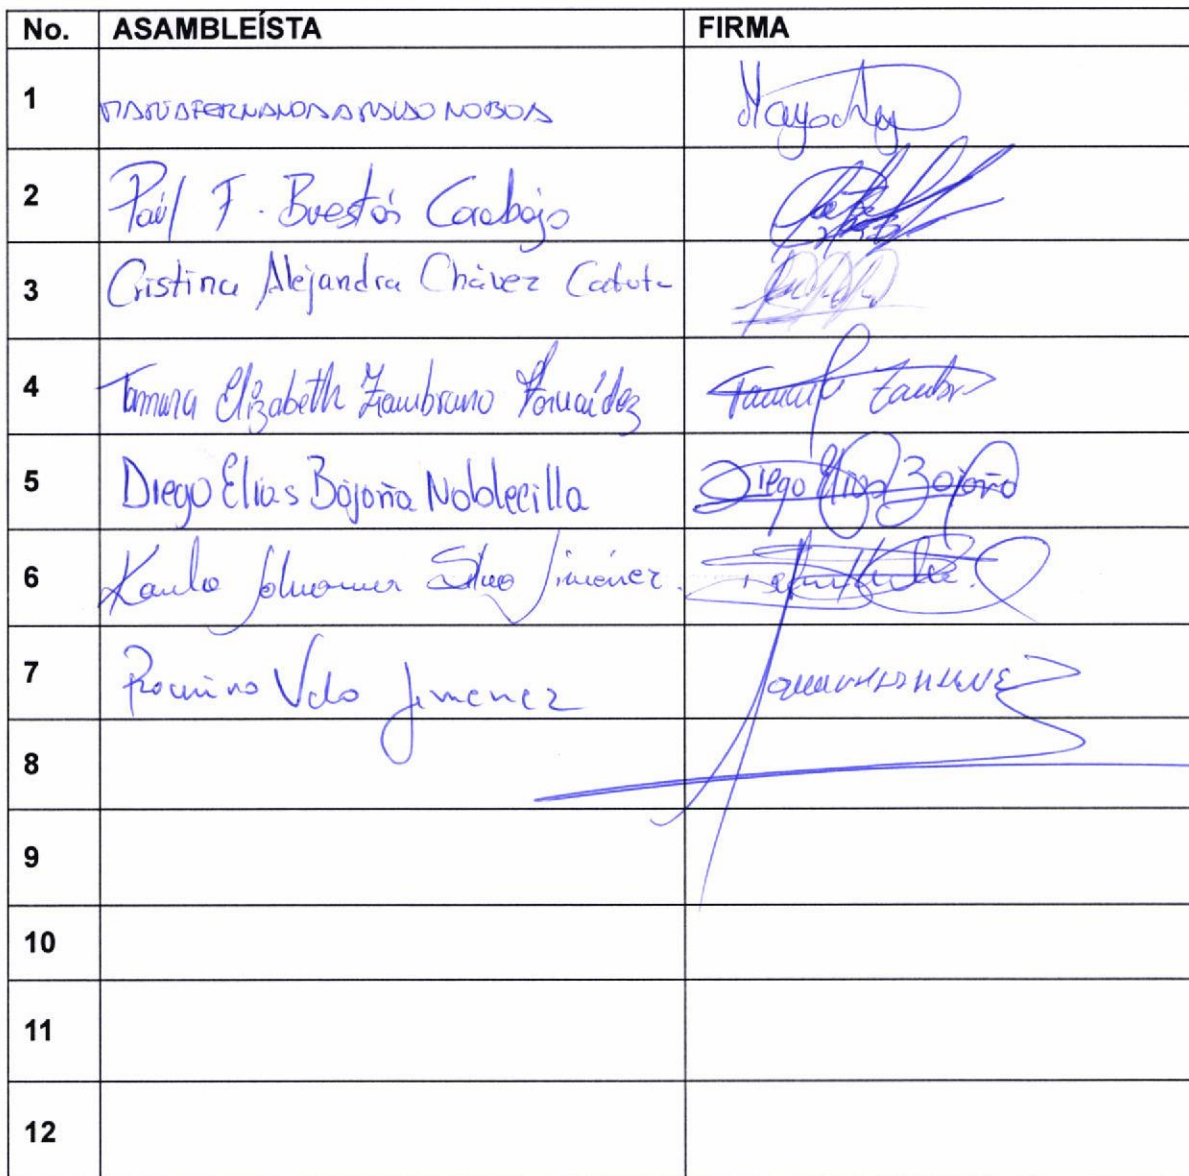 No. ASAMBLEÍSTA FIRMA
1 MARIA FERNANDA ARAUJO NOBOA
2 Paúl F. Buestán Carabajo
3 Cristina Alejandra Chávez
4 Tamara Elizabeth Zambrano Fernández Tamara Zambr
5 Diego Elias Bajaña Noblecilla Diego Elias Bajaña
6 Karla Johanna Silva Jiménez.
7 Romina Vela Jimenez
8
9
10
11
12